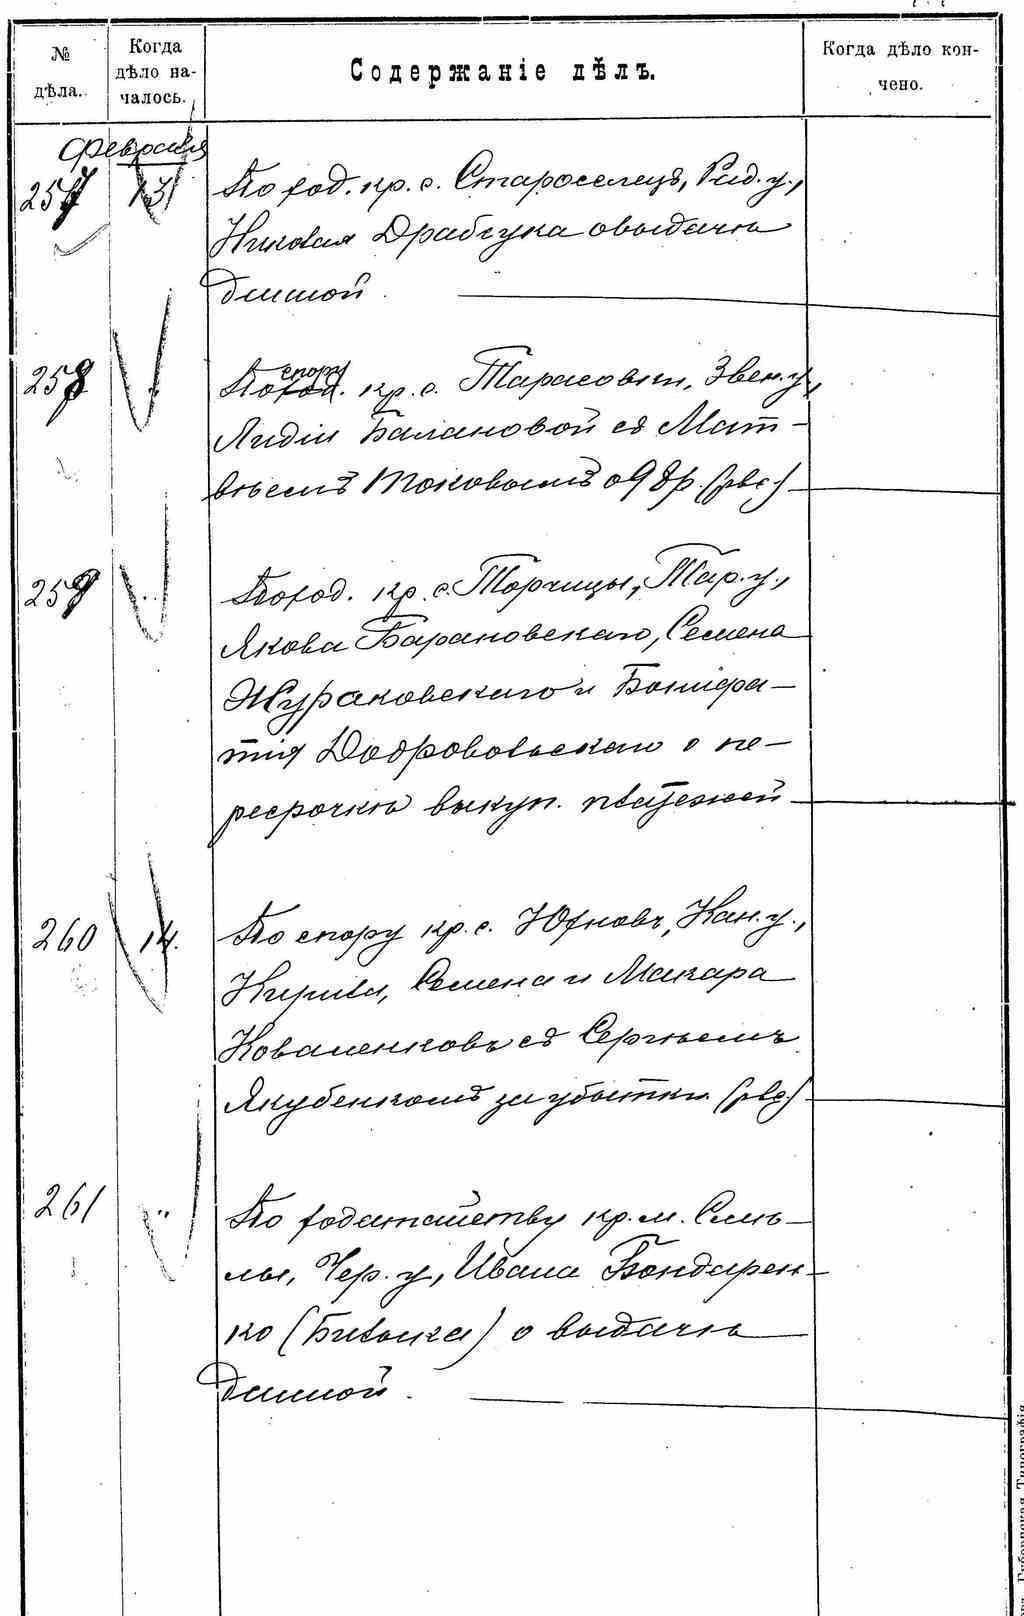 № дѣла.
Когда дѣло началось.
Содержаніе дѣлъ.
Когда дѣло кончено.
Февраля
257 13
По ход. кр. с. Староселецъ, Рад. у.,
Николая Драбчука о выдачѣ
данной.
258 "
По спору кр. с. Тарасовки, Звен. у.,
Лидіи Балановой съ Мат-
вѣемъ Токовымъ о 98 р.
259 "
По ход. кр. с. Торчицы, Тар. у.,
Якова Барановскаго, Семена
Жураковскаго и Бонифа-
тія Добровольскаго о пе-
ресрочкѣ выкуп. платежей
260 14.
По спору кр. с. Юхновъ, Кан. у.,
Кирила, Семена и Макара
Коваленковъ съ Сергѣемъ
Якубенкомъ за убытки
261 "
По ходатайству кр. м. Смѣ-
лы, Чер. у., Ивана Бондарен-
ко (Билыка) о выдачѣ
данной.
Губернская Типографія